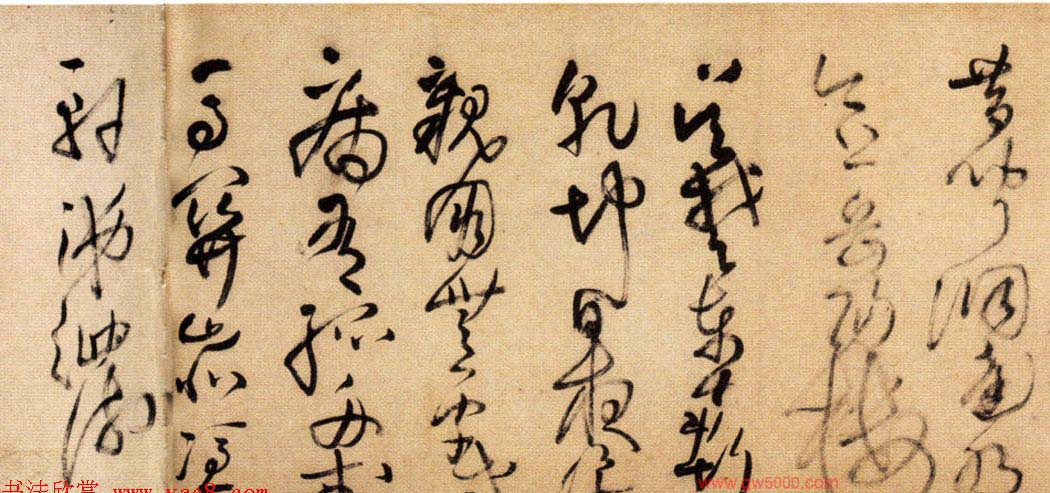 昔聞洞庭水
今上岳陽樓
吳楚東南坼
乾坤日夜浮
親朋無一字老
病有孤舟戎
馬關山北憑
軒涕泗流
书法欣赏 www.yac8.com
www.gw5000.com